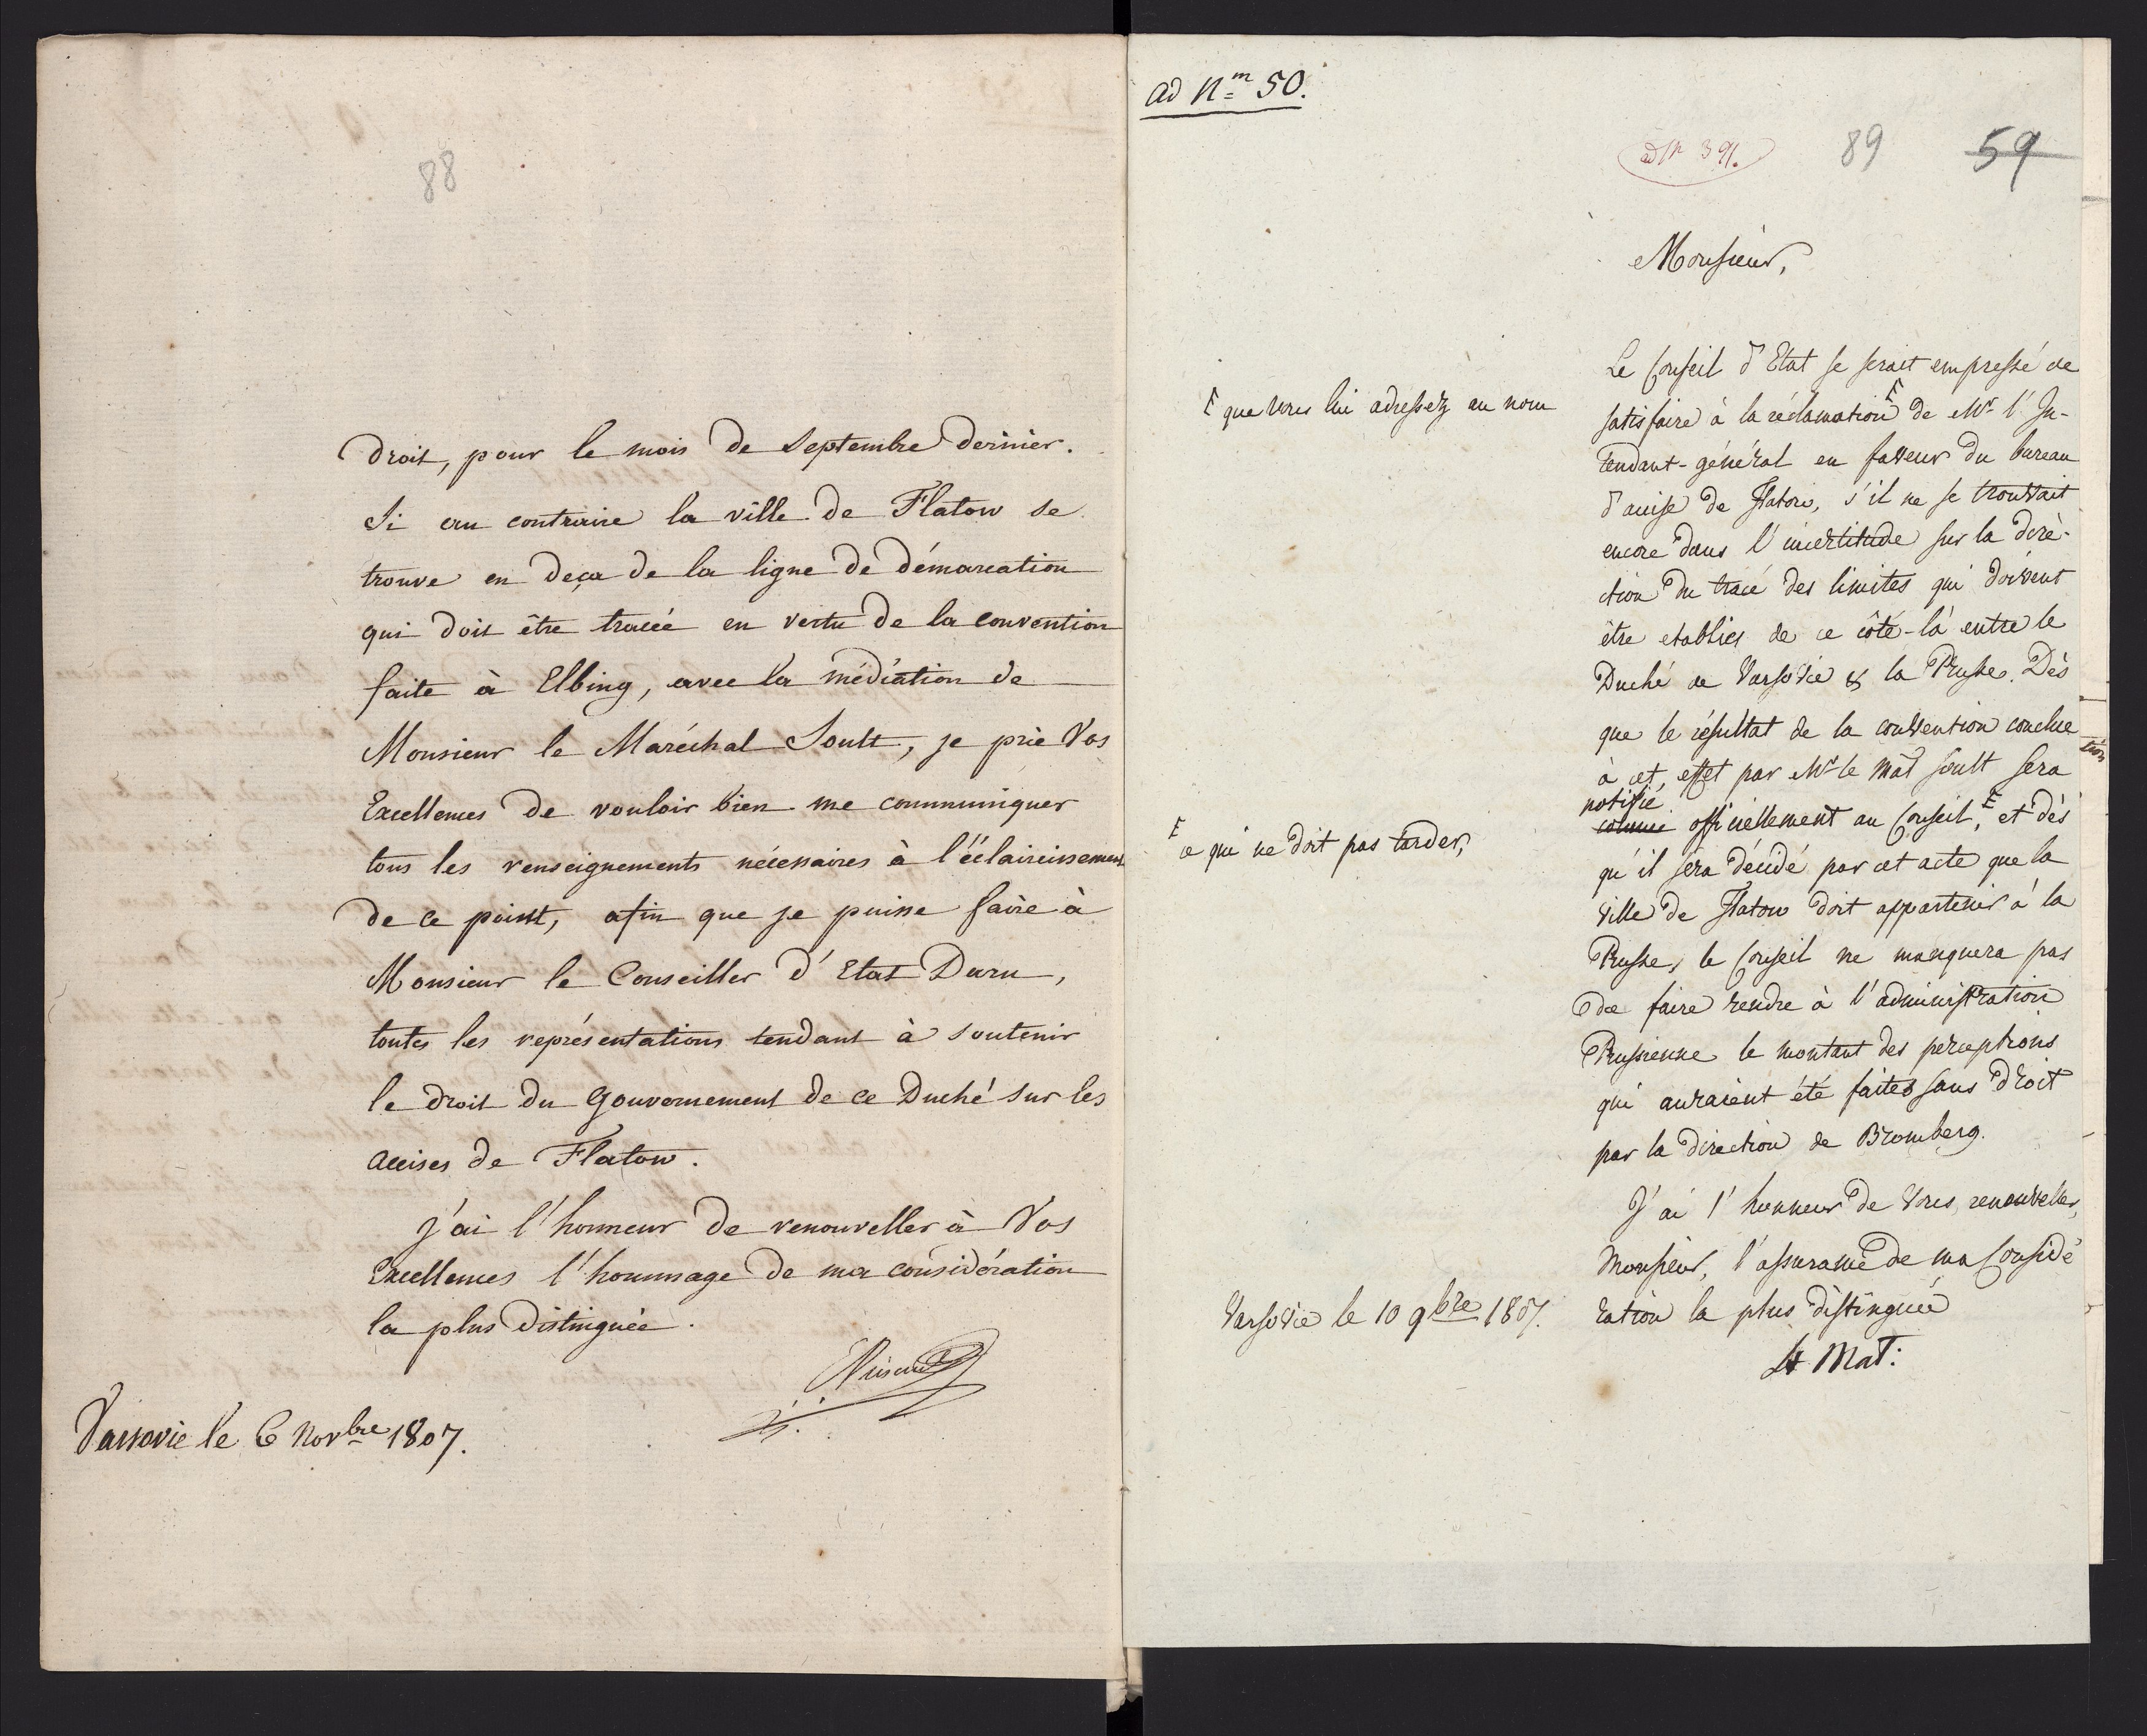 88
droit, pour le mois de Septembre dernier.
Si au contraire la ville de Flatow se
trouve en deça de la ligne de démarcation
qui doit être tracée en vertu de la convention
faite à Elbing, avec la médiation de
Monsieur le Maréchal Soult, je prie Vos
Excellences de vouloir bien me communiquer
tous les renseignements nécessaires à l'éclaircissement
de ce point, afin que je puisse faire à
Monsieur le Conseiller d'Etat Daru,
toutes les représentations tendant à soutenir
le droit du Gouvernement de ce Duché sur les
accises de Flatow.
J'ai l'honneur de renouveller à Vos
Excellences l'hommage de ma considération
la plus distinguée.
Varsovie le 6 Novbre 1807.
ad Nm 50.
ad N 391.
89
59
Monsieur,
Le Conseil d'Etat se serait empressé de
satisfaire à la réclamation de Mr l'In-
tendant-général en faveur du bureau
d'accise de Flatow, s'il ne se trouvait
encore dans l'incertitude sur la dirè-
ction du tracé des limites qui doivent
être etablies de ce côté-là entre le
Duché de Varsovie & la Prusse. Dès
que le résultat de la convention conclue
à cet effet par Mr le Mal Soult sera
notifié
officiellement au Conseil, et dès
qu'il sera décidé par cet acte que la
Ville de Flatow doit appartenir à la
Prusse, le Conseil ne manquera pas
de faire rendre à l'administration
Prussienne le montant des perceptions
qui auraient été faites sans droit
par la direction de Bromberg.
J'ai l'honneur de Vous renouveller,
Monsieur, l'assurance de ma Considé
ration la plus distinguée
St Mał:
que Vous lui adressez au nom
ce qui ne doit pas tarder,
Varsovie le 10 9bre 1807.